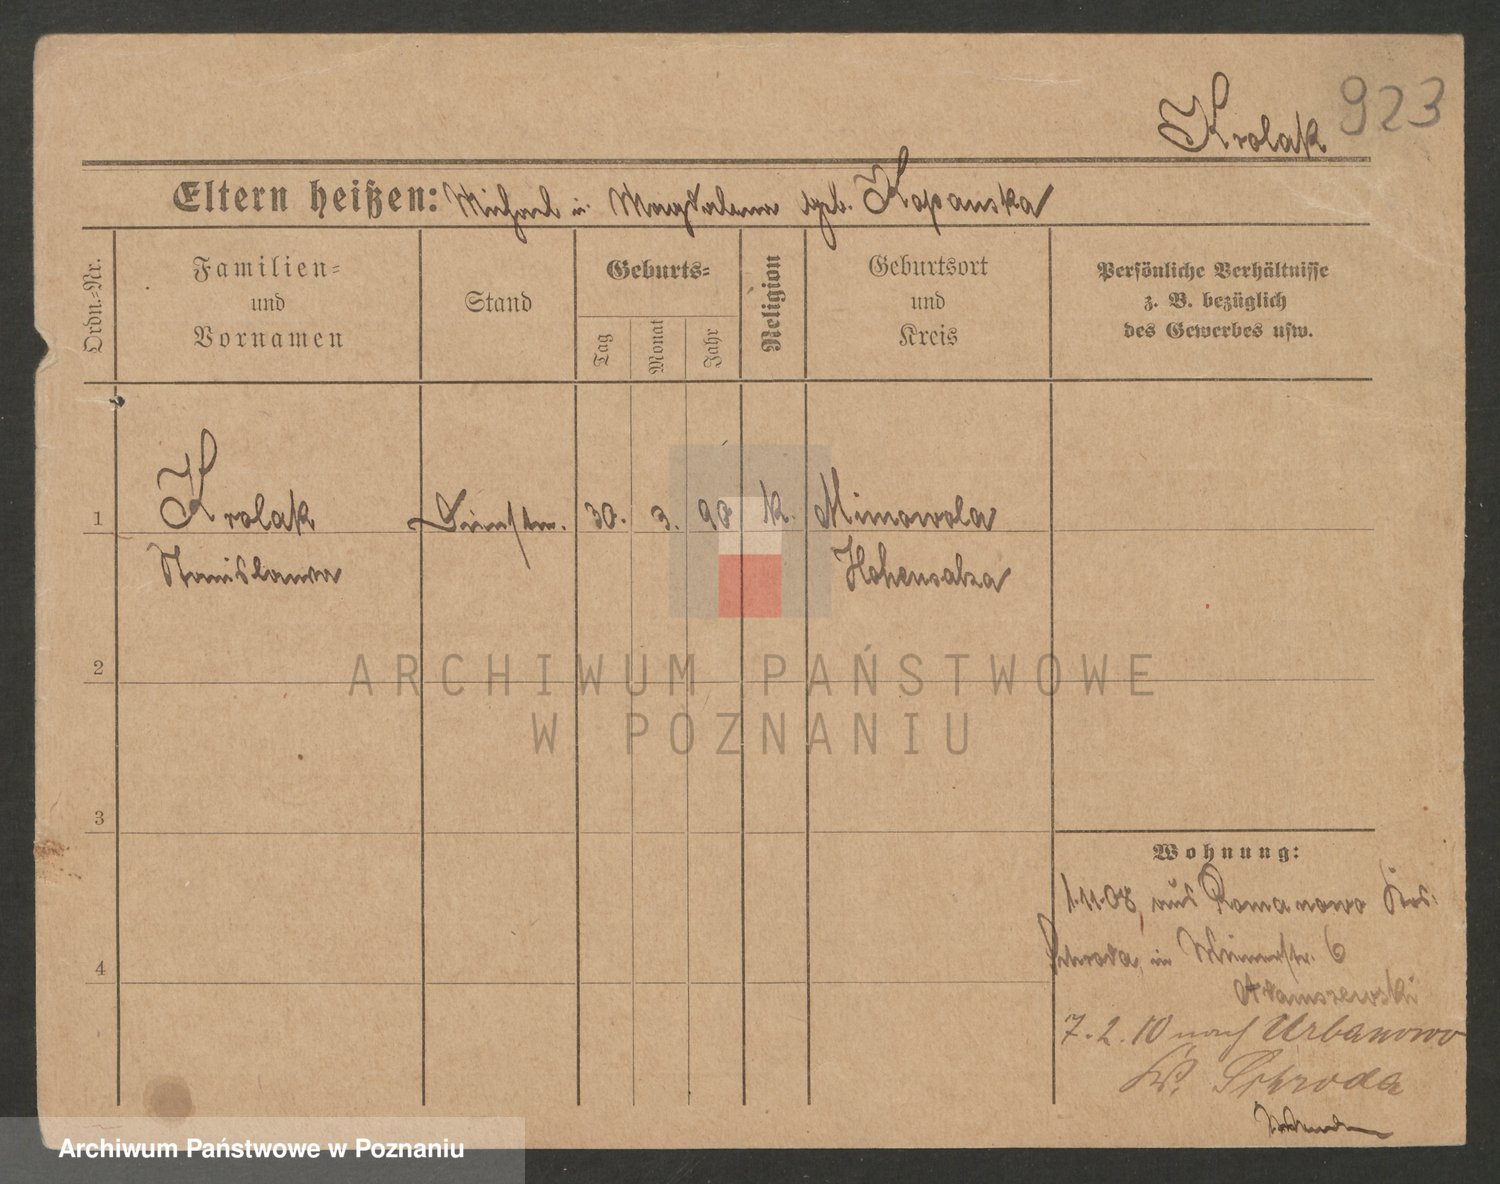 Krolak 923
Eltern heißen: Michael u. Magdalena geb. Kopanska
Ordn.-Nr.
Familien-
und
Vornamen
Stand
Geburts-
Tag
Monat
Jahr
Religion
Geburtsort
und
Kreis
Persönliche Verhältnisse
z. B. bezüglich
des Gewerbes usw.
1 Krolak 30. 3. 90 k. Mimowola
Stanislawa Hohensalza
2
3
4
Wohnung:
1.11.08, aus Romanowo Krs.
Schroda, in 6
Adamszewski
7.2.10 nach Urbanowo
Kr. Schroda
ARCHIWUM PAŃSTWOWE
W POZNANIU
Archiwum Państwowe w Poznaniu